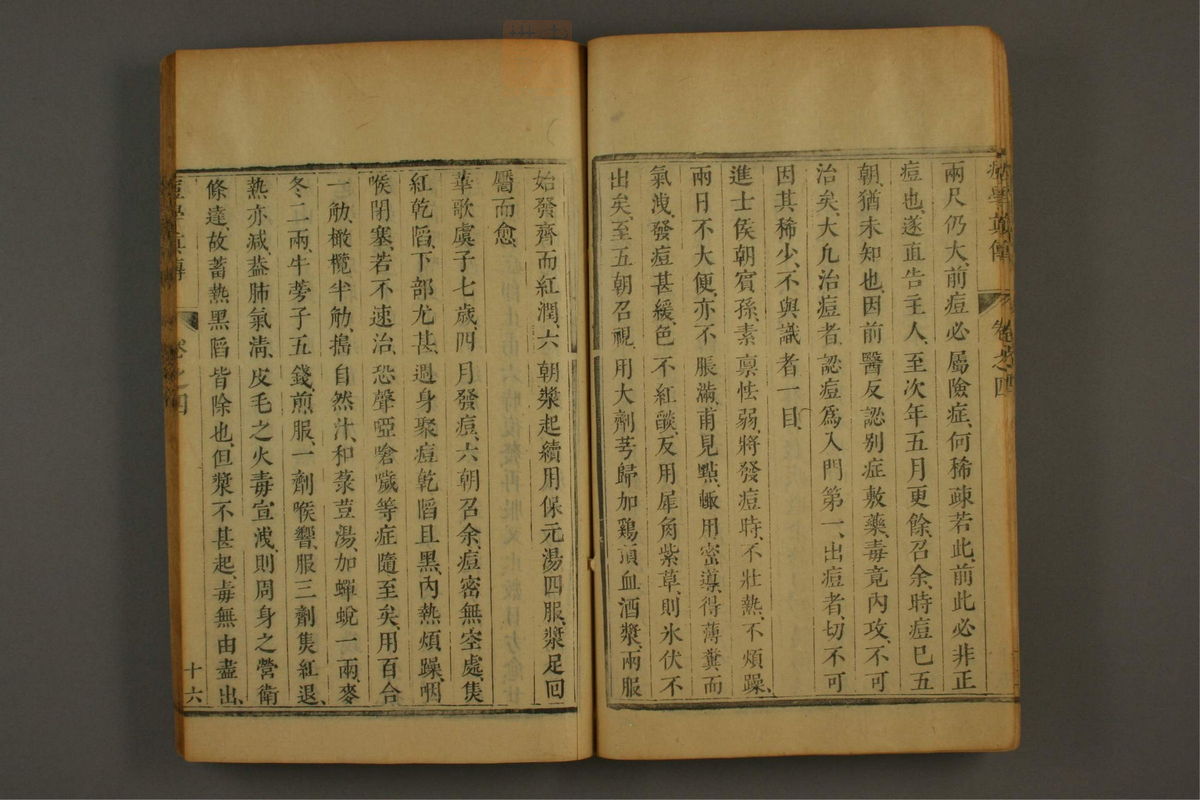 痘學眞傳 卷之四
兩尺仍大、前痘必屬險症、何稀疎若此、前此必非正
痘也、遂直告主人、至次年五月更餘、召余、時痘已五
朝、猶未知也、因前醫反認别症敷藥、毒竟內攻、不可
治矣、大凢治痘者、認痘爲入門第一、出痘者、切不可
因其稀少、不與識者一目、
進士侯朝賓孫、素禀怯弱、將發痘時、不壯熱、不煩躁、
兩日不大便、亦不脹滿、甫見點、輙用蜜導、得薄糞而
氣洩、發痘甚緩、色不紅㷔、反用犀角紫草、則氷伏不
出矣、至五朝召視、用大劑芎歸加鷄頂血酒漿、兩服
始發齊而紅潤、六朝漿起、續用保元湯四服、漿足回
靨而愈、
華歌虞子七歲、四月發痘、六朝召余、痘密無空處、焦
紅乾䧟、下部尤甚、遍身聚痘乾䧟且黑、內熱煩躁、咽
喉閉塞、若不速治、恐聲啞嗆嘔等症隨至矣、用百合
一觔、橄欖半觔、搗自然汁、和菉荳湯、加蟬蛻一兩、麥
冬二兩、牛蒡子五錢、煎服、一劑喉響、服三劑焦紅退、
熱亦减、葢肺氣淸、皮毛之火毒宣洩、則周身之營衛
條達、故蓄熱黑䧟皆除也、但漿不甚起、毒無由盡出、
痘學眞傳 卷之四
十六